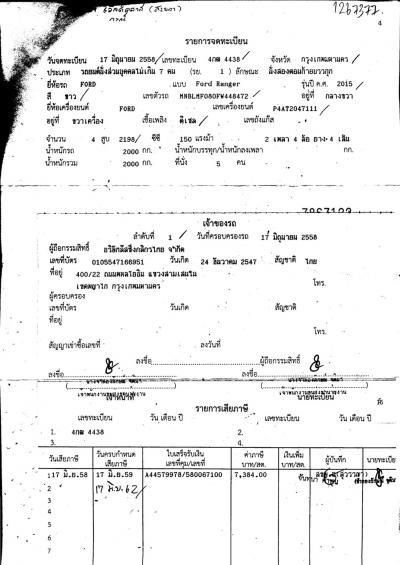 1267377
4
รายการจดทะเบียน
วันจดทะเบียน 17 มิถุนายน 2558 เลขทะเบียน 4กฒ 4438 จังหวัด กรุงเทพมหานคร
ประเภท รถยนต์นั่งส่วนบุคคลไม่เกิน 7 คน (รย. 1) ลักษณะ นั่งสองตอนท้ายบรรทุก
ยี่ห้อรถ FORD แบบ Ford Ranger รุ่นปี ค.ศ. 2015
สี ขาว เลขตัวรถ อยู่ที่ กลางขวา
ยี่ห้อเครื่องยนต์ FORD เลขเครื่องยนต์ P4AT2047111
อยู่ที่ ขวาเครื่อง เชื้อเพลิง ดีเซล เลขถังแก๊ส
จำนวน 4 สูบ 2198 ซีซี 150 แรงม้า 2 เพลา 4 ล้อ ยาง 4 เส้น
น้ำหนักรถ 2000 กก. น้ำหนักบรรทุก/น้ำหนักลงเพลา กก.
น้ำหนักรวม 2000 กก. ที่นั่ง 5 คน
เจ้าของรถ
ลำดับที่ 1 วันที่ครอบครองรถ 17 มิถุนายน 2558
ผู้ถือกรรมสิทธิ์ จำกัด
เลขที่บัตร 0105547166951 วันเกิด 24 ธันวาคม 2547 สัญชาติ ไทย
ที่อยู่ 400/22 ถนนพหลโยธิน แขวงสามเสนใน
เขตพญาไท กรุงเทพมหานคร โทร.
ผู้ครอบครอง
เลขที่บัตร วันเกิด สัญชาติ
ที่อยู่
โทร.
สัญญาเช่าซื้อเลขที่ ลงวันที่
ลงชื่อ ผู้ถือกรรมสิทธิ์
ลงชื่อ ลงชื่อ
เจ้าหน้าที่ นายทะเบียน
รายการเสียภาษี
เลขทะเบียน วัน เดือน ปี เลขทะเบียน วัน เดือน ปี
1. 4กฒ 4438 2.
3. 4.
วันเสียภาษี วันครบกำหนดเสียภาษี ใบเสร็จรับเงิน เลขที่คุม/เลขที่ ค่าภาษี บาท/สต. เงินเพิ่ม บาท/สต. ผู้บันทึก นายทะเบียน
1 17 มิ.ย.58 17 มิ.ย.59 A44579978/580067100 7,384.00
2 17 มิ.ย. 62
3
4
5
6
7